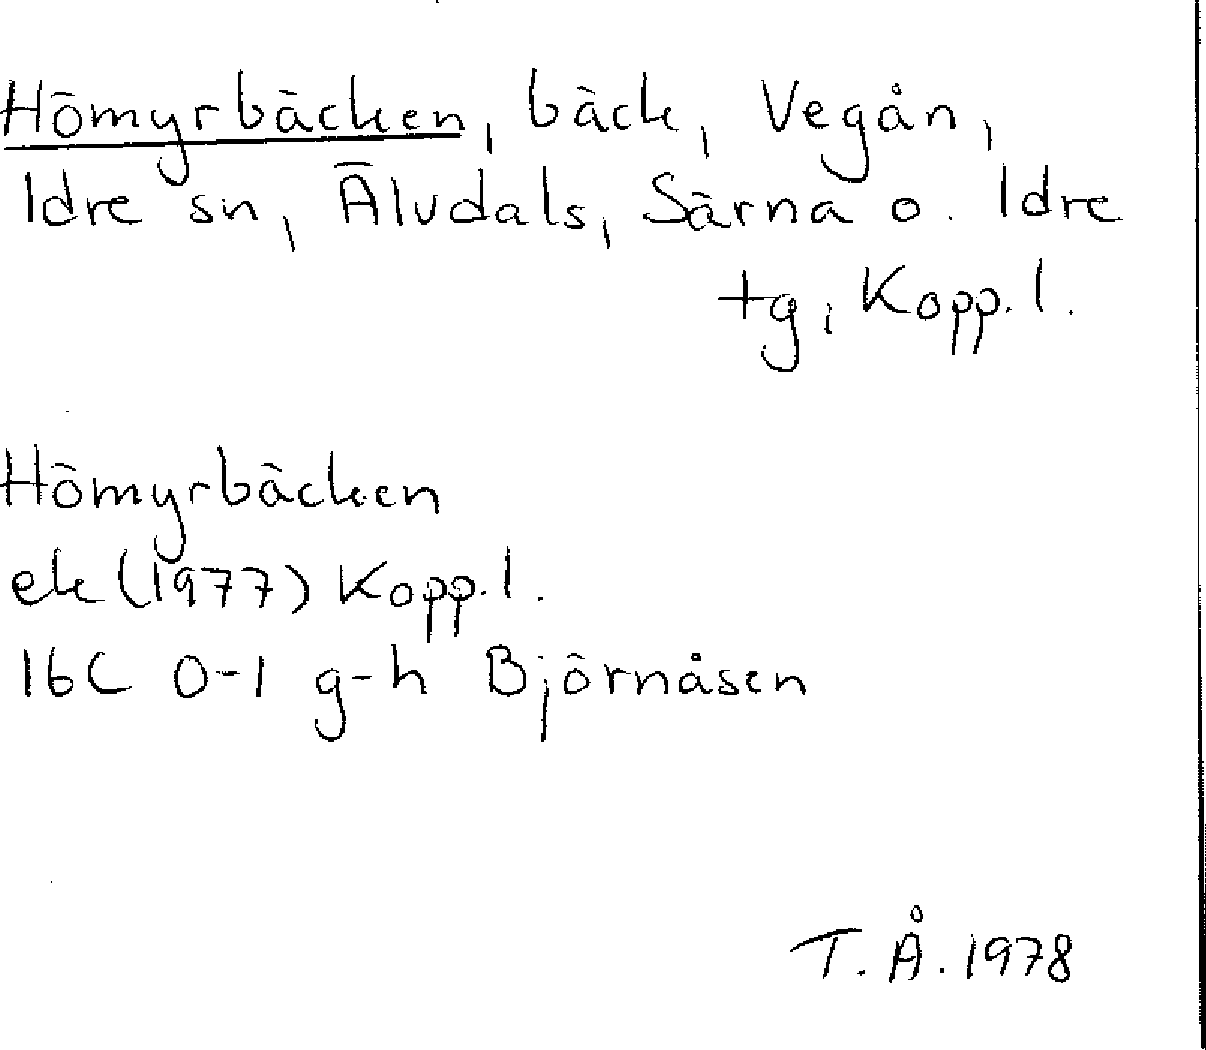 Hömyrbäcken, bäck, Vegån,
Idre sn, Älvdals, Särna o. Idre
tg, Kopp. l.
Hömyrbäcken
ek (1977) Kopp. l.
16C 0-1 g-h Björnåsen
T. Å. 1978